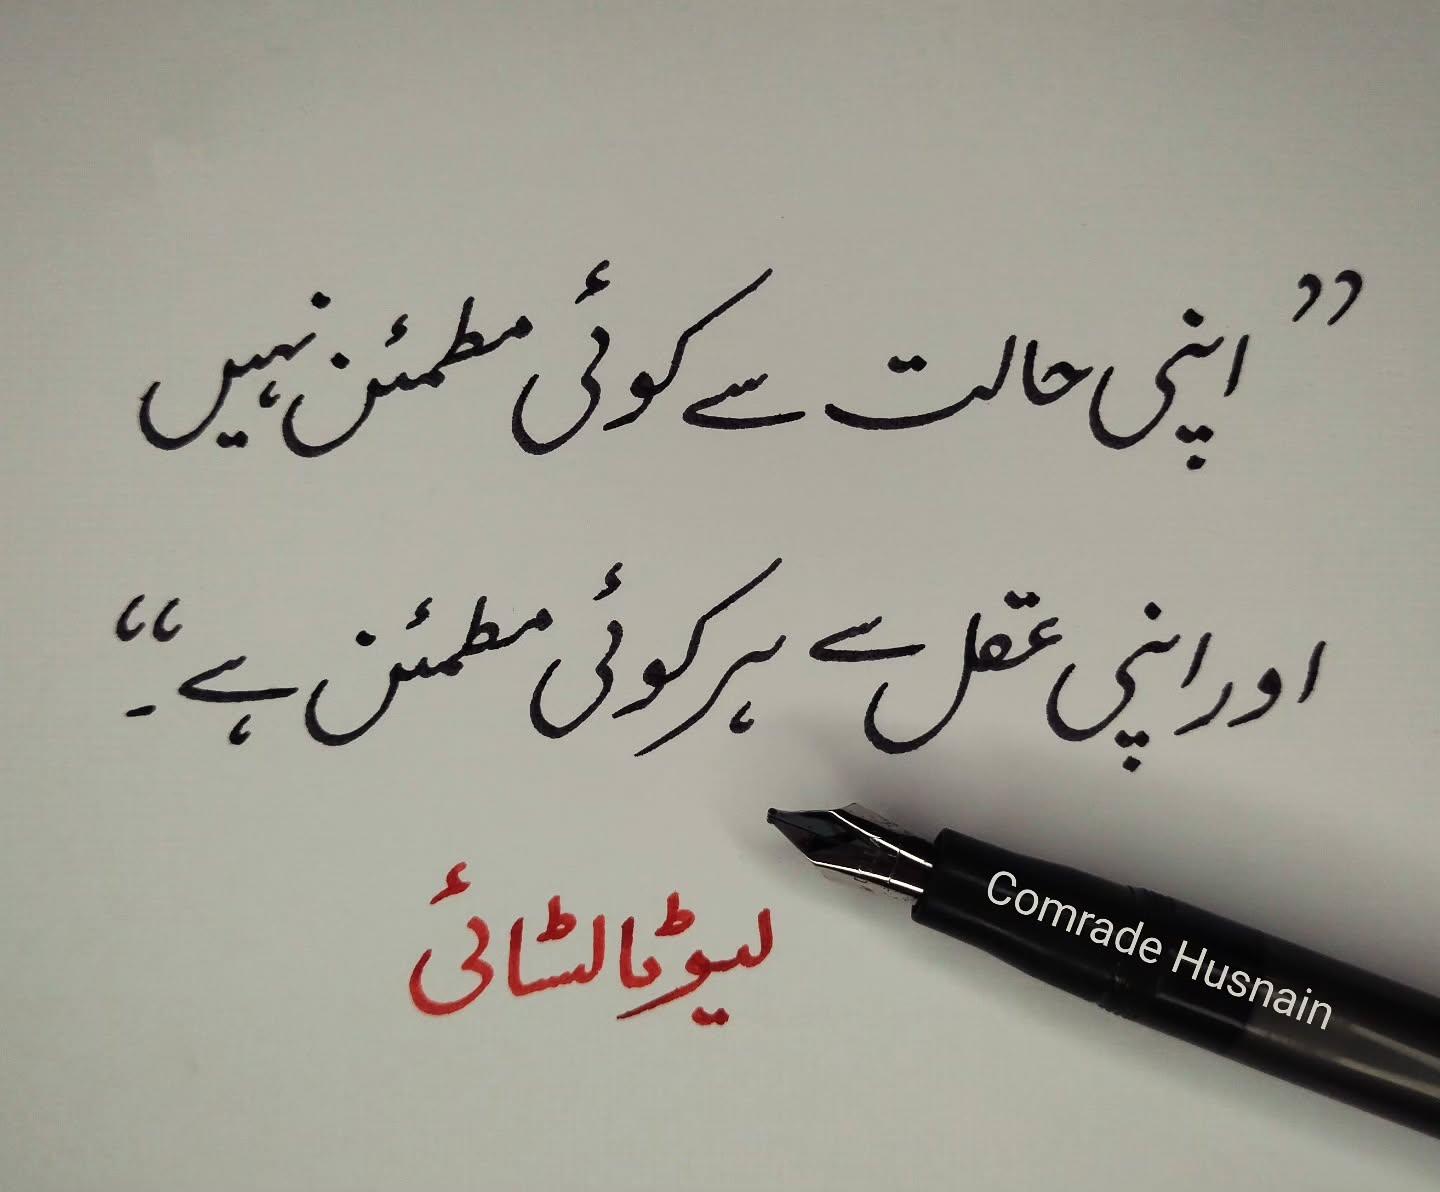 ”اپنی حالت سے کوئی مطمئن نہیں
اور اپنی عقل سے ہر کوئی مطمئن ہے۔“
لیوٹالسٹائی
Comrade Husnain